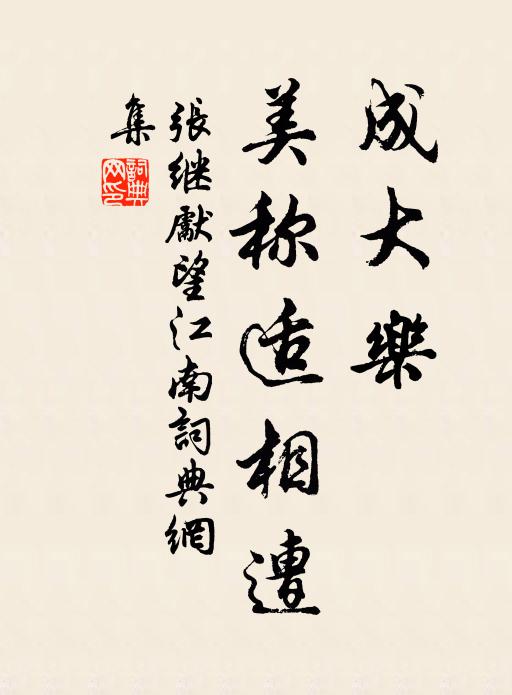 成大樂
美称适相遭
張继獻望江南詞典網
集
詞典網印